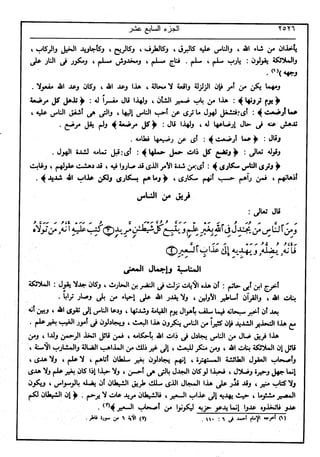 ٢٥٢٦ الجزء السابع عشر
يأخذان من شاء الله ، والناس عليه كالبرق ، وكالطرف ، وكالريح ، وكأجاويد الخيل والركاب ،
والملائكة يقولون : يارب سلم ، سلم . فناج مسلم ، ومخدوش مسلم ، ومكور فى النار على
وجهه )(١) .
ومهما يكن من أمر فإن الزلزلة واقعة لا محالة ، هذا وعد الله ، وكان وعد الله مفعولا .
﴿ يوم ترونها ﴾ : هذا من باب ضمير الشأن ، ولهذا قال مفسراً له : ﴿ تذهل كل مرضعة
عما أرضعت ﴾ : أى: فتشغل لهول ما ترى عن أحب الناس إليها ، والتى هى أشفق الناس عليه ،
تدهش عنه فى حال إرضاعها له ، ولهذا قال : ﴿ كل مرضعة ﴾ ولم يقل مرضع .
وقال : ﴿ عما أرضعت ﴾ : أى عن رضيعها فطامه .
وقوله تعالى : ﴿ وتضع كل ذات حمل حملها ﴾ : أى: قبل تمامه لشدة الهول .
﴿ وترى الناس سكارى ﴾ : أى: من شدة الأمر الذى قد صاروا فيه ، قد دهشت عقولهم ، وغابت
أذهانهم ، فمن رآهم حسب أنهم سكارى ، ﴿ وما هم بسكارى ولكن عذاب الله شديد ﴾ .
فريق من الناس
قال تعالى :
وَمِنَ ٱلنَّاسِ مَن يُجَٰدِلُ فِي ٱللَّهِ بِغَيۡرِ عِلۡمٖ وَيَتَّبِعُ كُلَّ شَيۡطَٰنٖ مَّرِيدٖ ٣ كُتِبَ عَلَيۡهِ أَنَّهُۥ مَن تَوَلَّاهُ
فَأَنَّهُۥ يُضِلُّهُۥ وَيَهۡدِيهِ إِلَىٰ عَذَابِ ٱلسَّعِيرِ ٤
المناسبة وإجمال المعنى
أخرج ابن أبى حاتم : أن هذه الآيات نزلت فى النضر بن الحارث ، وكان جدلا يقول : الملائكة
بنات الله ، والقرآن أساطير الأولين ، ولا يقدر الله على إحياء من بلى وصار تراباً .
بعد أن أخبر سبحانه فيما سلف بأهوال يوم القيامة وشدتها ، ودعا الناس إلى تقوى الله ، وبين أنه
مع هذا التحذير الشديد فإن كثيراً من الناس ينكرون هذا البعث ، ويجادلون فى أمور الغيب بغير علم .
هذا فريق ضال من الناس يجادل فى ذات الله بأحكامه ، فمن قائل اتخذ الرحمن ولداً ، ومن
قائل إن الملائكة بنات الله ، ومن منكر للبعث ، إلى غير ذلك من المذاهب الضالة والمشارب الآسنة ،
وأصحاب العقول الطائشة المستهترة ، إنهم يجادلون بغير سلطان أتاهم ، لا علم ، ولا هدى ،
إنما جهل وحيرة وضلال ، فحبذا لو كان الجدل بالتى هى أحسن ، ولا حبذا إذا كان بغير علم ولا هدى
ولا كتاب منير ، وقد قدّر على هذا المجال الذى سلك طريق الشيطان أن يضله بالوسواس ، ويكون
المصير مشئوما ، حيث يهديه إلى عذاب السعير ، فالشيطان مريد عات لا يرحم . ﴿ إن الشيطان لكم
عدو فاتخذوه عدوا إنما يدعو حزبه ليكونوا من أصحاب السعير ﴾(٢) .
(١) أخرجه الإمام أحمد فى ٦ : ١١٠ . (٢) الآية ٦ من سورة فاطر .